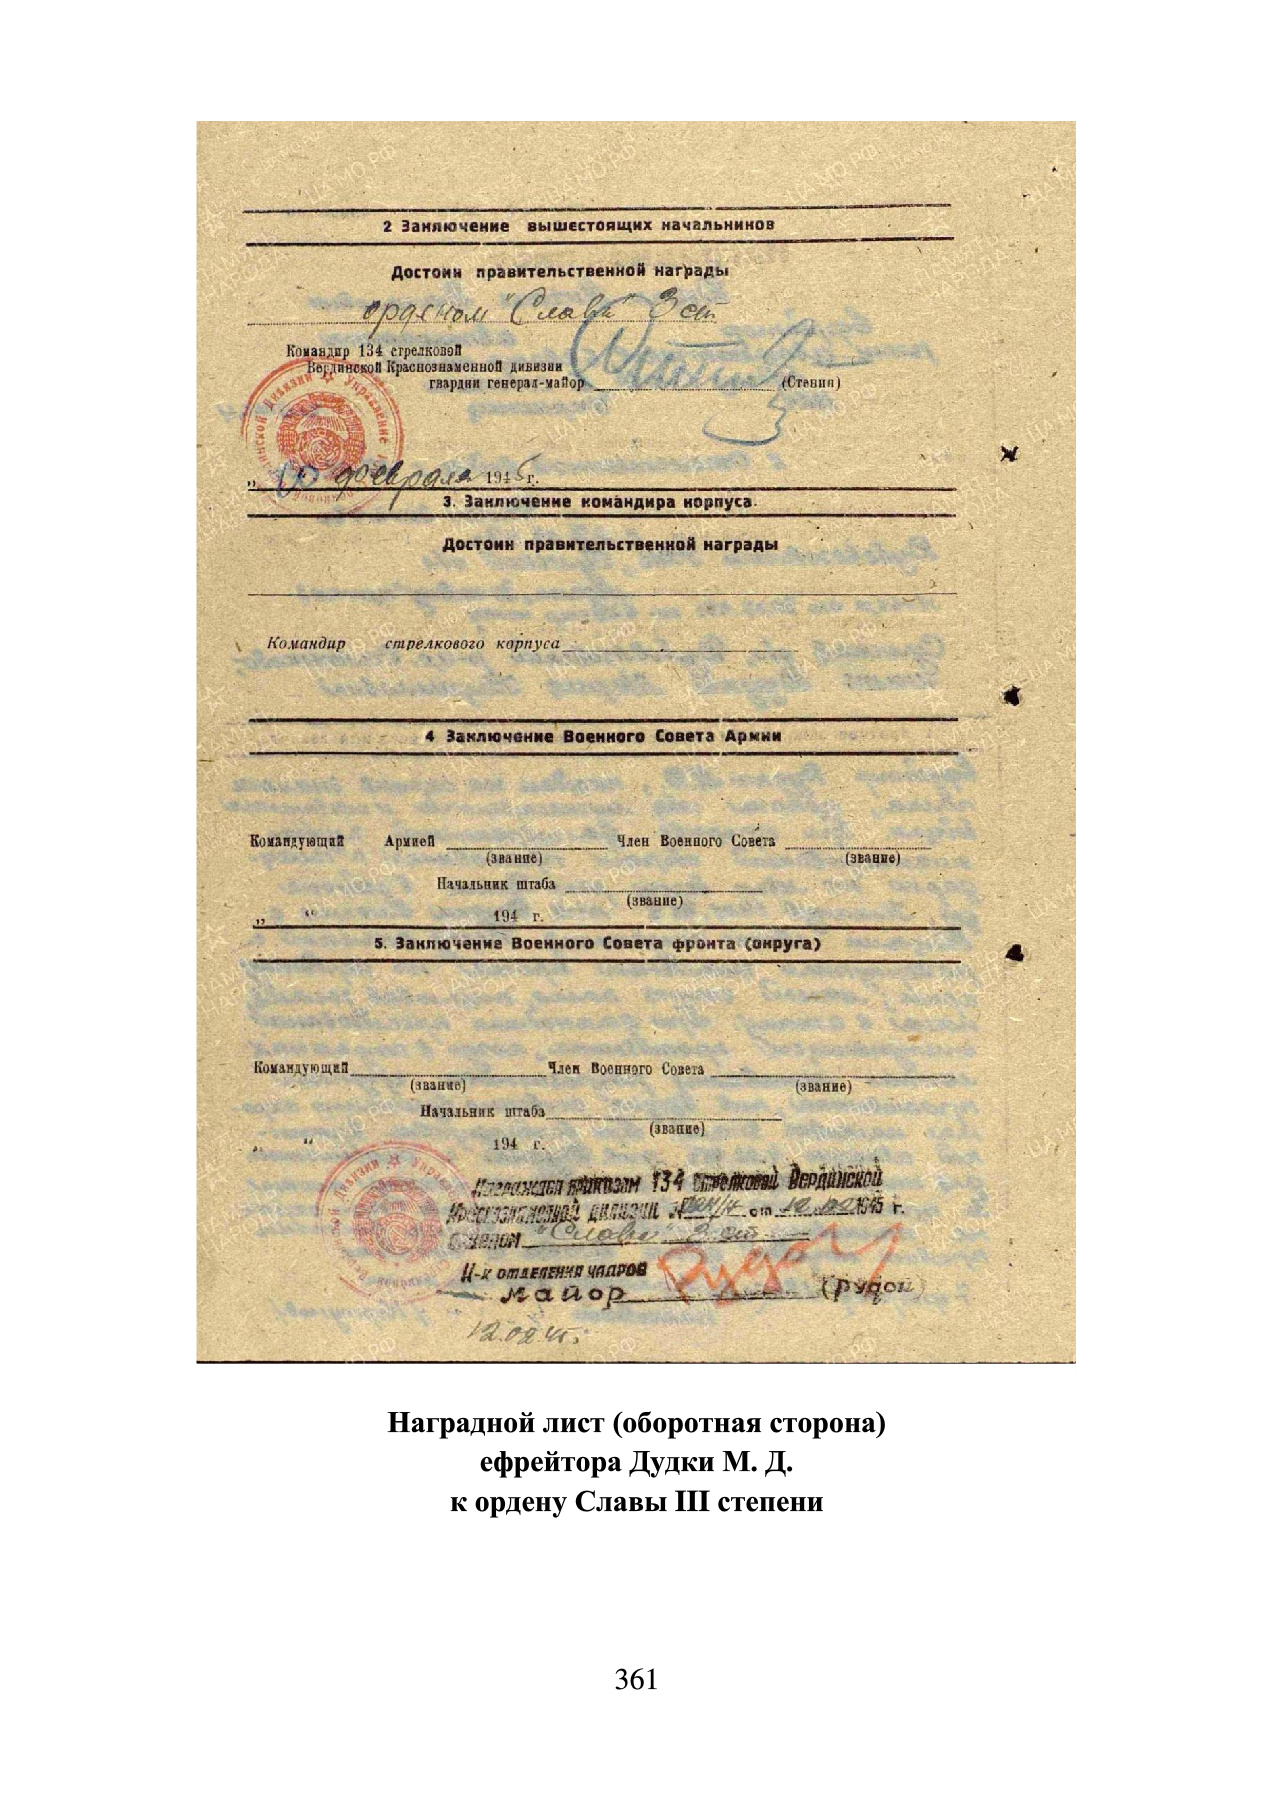 2 Заключение вышестоящих начальников
Достоин правительственной награды
орденом "Славы" 3 ст
Командир 134 стрелковой
Вердинской Краснознаменной дивизии
гвардии генерал-майор (Стенин)
„ 10 " февраля 1945 г.
3. Заключение командира корпуса.
Достоин правительственной награды
Командир стрелкового корпуса
4 Заключение Военного Совета Армии
Командующий Армией Член Военного Совета
(звание) (звание)
Начальник штаба
(звание)
„ " 194 г.
5. Заключение Военного Совета фронта (округа)
Командующий Член Военного Совета
(звание) (звание)
Начальник штаба
(звание)
„ " 194 г.
Награжден приказом 134 стрелковой Вердинской
Краснознаменной дивизии № от 12.02 1945 г.
орденом "Славы" 3 ст
Н-к отделения кадров
майор Рудой (Рудой)
12.02.45г.
Наградной лист (оборотная сторона)
ефрейтора Дудки М. Д.
к ордену Славы III степени
361